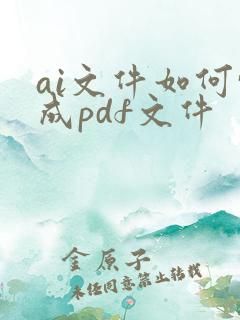 ai文件如何
成pdf文件
金原子
未经同意禁止转载